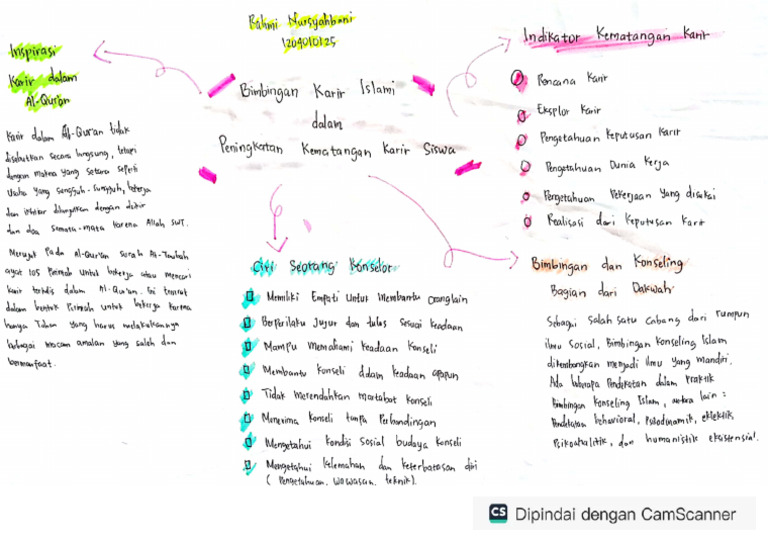 Rahmi Nursyahbani
1204010125
Bimbingan Karir Islami
dalam
Peningkatan Kematangan Karir Siswa
Inspirasi
Karir dalam
Al-Qur'an
Karir dalam Al-Quran tidak
disebutkan secara langsung, tetapi
dengan makna yang setara seperti
Usaha yang sungguh-sungguh, bekerja
dan ikhtiar dilanjutkan dengan dzikir
dan doa semata-mata karena Allah SWT.
Merujuk Pada Al-Qur'an Surah At-Taubah
ayat 105 Perintah untuk bekerja atau mencari
karir tertulis dalam Al-Qur'an. Ini tersirat
dalam bentuk Perintah untuk bekerja karena
hanya Tuhan yang harus melakukannya
sebagai macam amalan yang saleh dan
bermanfaat.
Indikator Kematangan Karir
Rencana Karir
Eksplor Karir
Pengetahuan Keputusan Karir
Pengetahuan Dunia Kerja
Pengetahuan Pekerjaan yang disukai
Realisasi dari Keputusan Karir
Ciri Seorang Konselor
Memiliki Empati Untuk Membantu orang lain
Berperilaku Jujur dan tulus sesuai keadaan
Mampu memahami keadaan Konseli
Membantu Konseli ddam keadaan apapun
Tidak merendahkan martabat Konseli
Menerima Konseli tanpa Perbandingan
Mengetahui Kondisi Sosial budaya Konseli
Mengetahui kelemahan dan keterbatasan diri
( Pengetahuan, wawasan, teknik).
Bimbingan dan Konseling
Bagian dari Dakwah
Sebagai salah satu cabang dari rumpun
ilmu sosial, Bimbingan Konseling Islam
dikembangkan menjadi ilmu yang mandiri.
Ada beberapa Pendekatan dalam Praktik
Bimbingan Konseling Islam, antara lain :
Pendekatan behavioral, Psikodinamik, eklektik
Psikoanalitik, dan humanistik eksistensial.
CS Dipindai dengan CamScanner